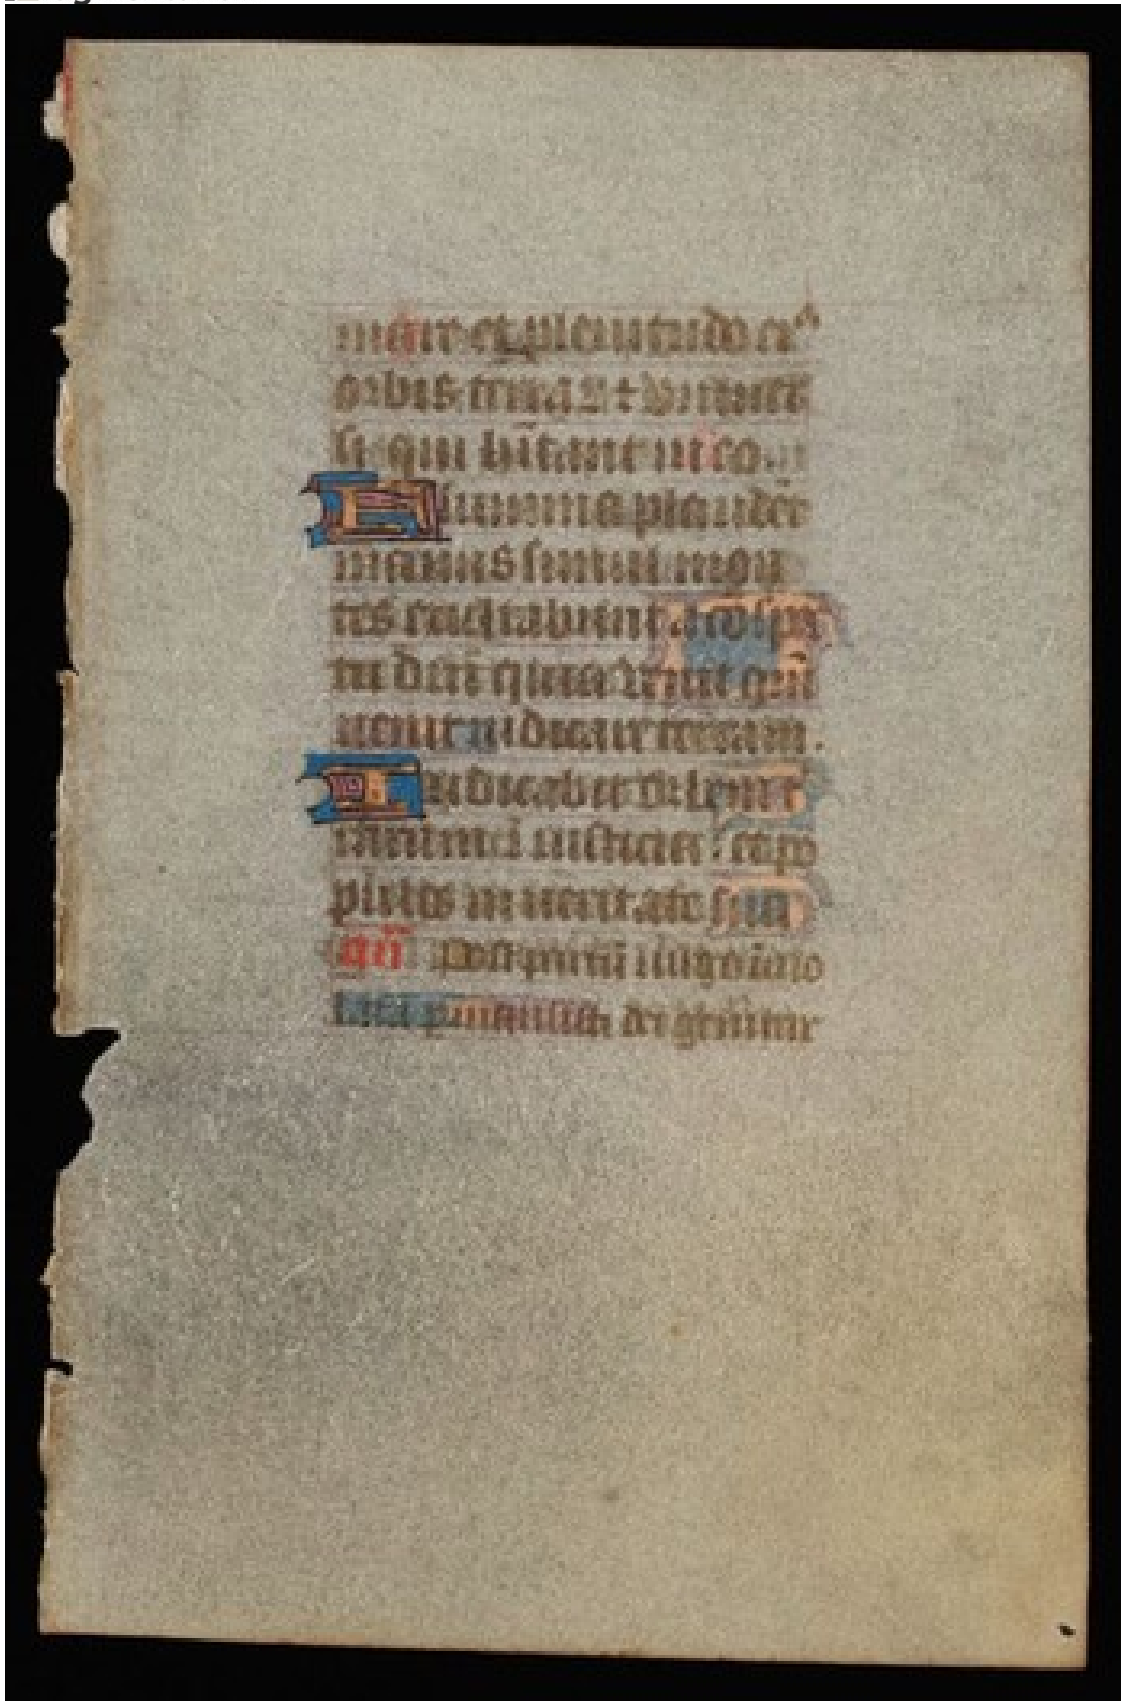 mare et plenitudo ei9
orbis terraꝝ ⁊ uniuer
si qui hītant in eo.
Flumina plaudēt
manus simul mon
tes exultabunt a cōspc̄
tu dn̄i quia uenit qm̄
uenit iudicare terram.
Iudicabit orbem
terrarum ī iusticia: et po
pulos in ueritate sua
an̄ Post partū uirgo īuio
lata permansisti dei genitrix